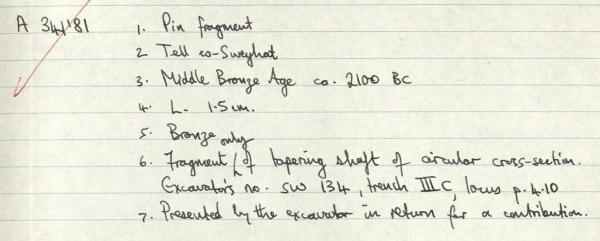 A 34/'81 1. Pin fragment
2 Tell es-Sweyhat
3. Middle Bronze Age ca. 2100 BC
4. L. 1.5 cm.
5. Bronze
6. Fragment only of tapering shaft of circular cross-section.
Excavator's no. SW 134, trench IIIC, locus p. 4.10
7. Presented by the excavator in return for a contribution.